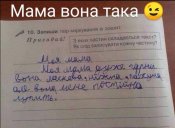 Мама вона така 😉
10. Запиши твір-міркування в зошит.
Пригадай! З яких частин складається текст?
Як слід записувати кожну частину?
Моя мама
Моя мама дуже гарна
вона ласкава, ніжна,
але вона мене постійно